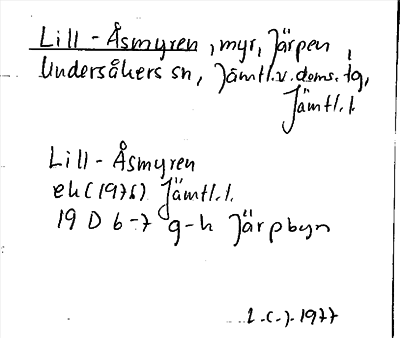 Lill-Åsmyren, myr, Järpen,
Undersåkers sn, Jämtl.v.doms.tg,
Jämtl.l.
Lill-Åsmyren
ek (1976) Jämtl.l.
19 D 6-7 g-h Järpbyn
1977